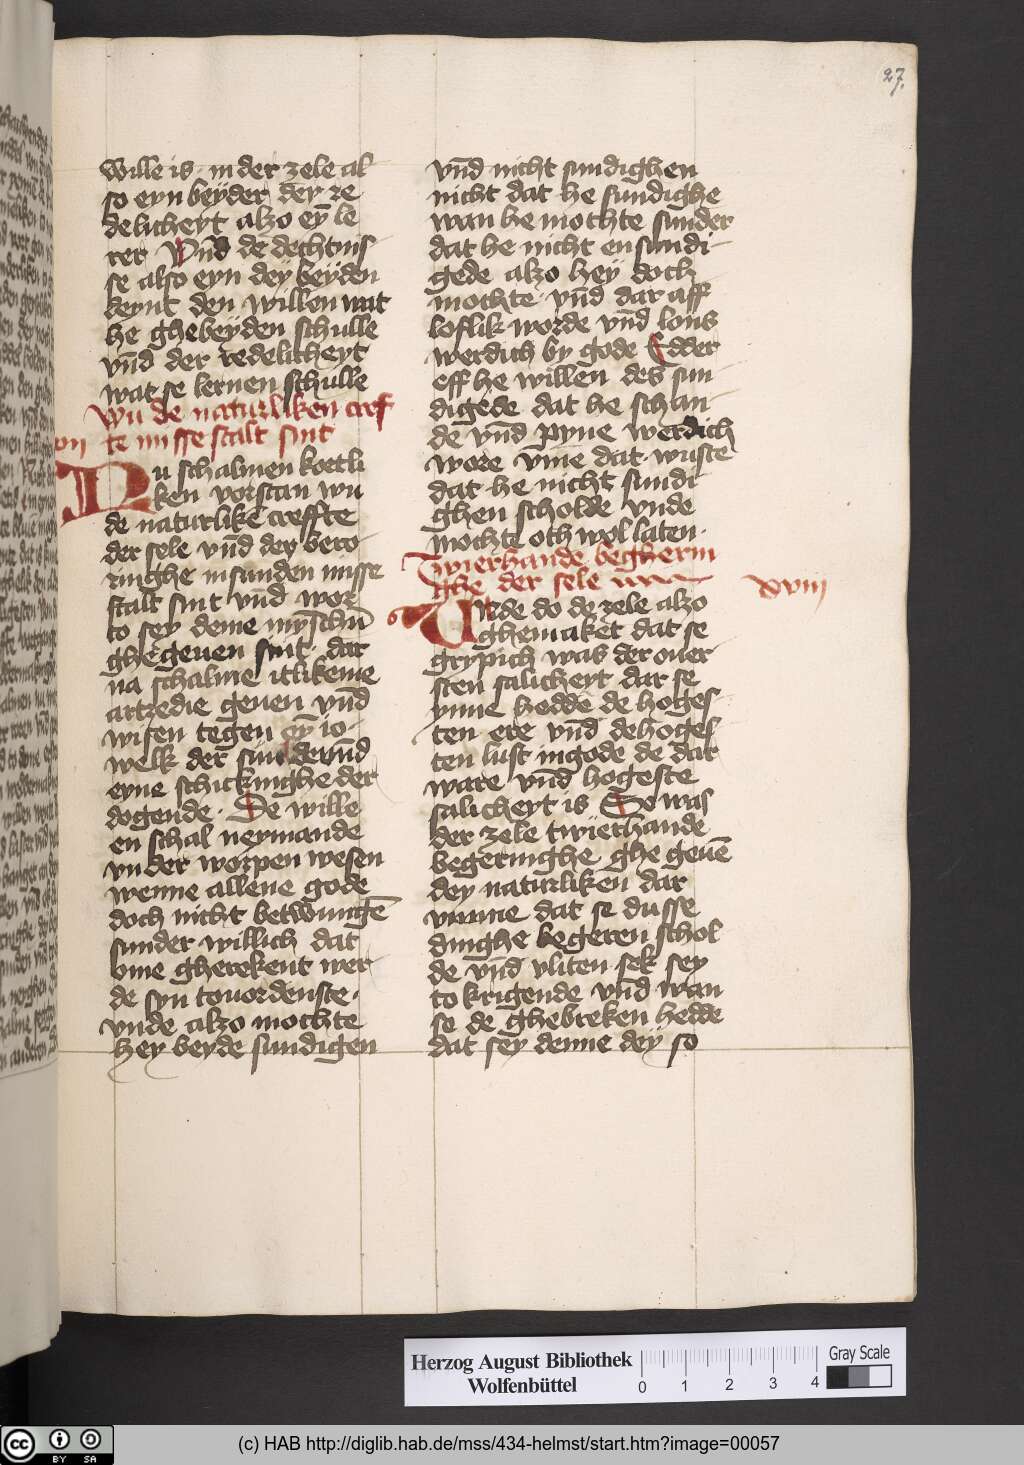 27.
wille is · in der zele al
so eyn beyder dey re
delicheyt alzo ey̅ le
rer Vn̅d de dechtnis
se also eyn dey beyden
deynt den willen wat
he ghebeyden schulle
vn̅d der redelicheyt
wat se lernen schulle
wu de naturliken cref
te misse stalt sint
Nu schalmen kortli
ken vorstan wu
de naturlike creffte
der sele vn̅d dey bero
ringhe in sunden misse
stalt sint vn̅d wor
to sey deme mynschn̅
ghegeuen sint · dar
na schalme itlikeme
artzedie geuen vn̅d
wisen tegen ey̅ io
welk der sunde vn̅d
eyne schickinghe der
dogende · De wille
en schal neymande
vnder worpen wesen
wenne allene gode
doch nicht betwunge̅
sunder willich dat
ome gherekent wer
de syn touordenste ·
vnde alzo mochte
hey beyde sundigen
vn̅d nicht sundighen
nicht dat he sundighe
wan he mochte sunder
dat he nicht en sundi
gede alzo hey doch
mochte · vn̅d dar aff
loflik worde vn̅d lons
werdich by gode Edder
eff he willen des sun
digede dat he schan
de vn̅d pyne werdich
wore vm̅e dat · wuste
dat he nicht sundi
ghen scholde vnde
mochte oth wol laten ·
Twierhande begherin
ghe der sele
xviii
Urde do de zele alzo
ghemaket dat se
grypich was der ouer
sten salicheyt dar se
ynne hedde de hoges
ten ere vn̅d de hoges
ten lust in gode de dar
ware vn̅d hogeste
salicheyt is So was
der zele twierhande
begeringhe ghe geue̅
dey naturliken dar
vmme dat se dusse
dinghe begeren schol
de vn̅d vliten sek sey
to krigende vn̅d wan
se de ghebreken hedde
dat sey denne dey so
Herzog August Bibliothek
Wolfenbüttel
0 1 2 3 4
Gray Scale
cc BY SA
(c) HAB http://diglib.hab.de/mss/434-helmst/start.htm?image=00057